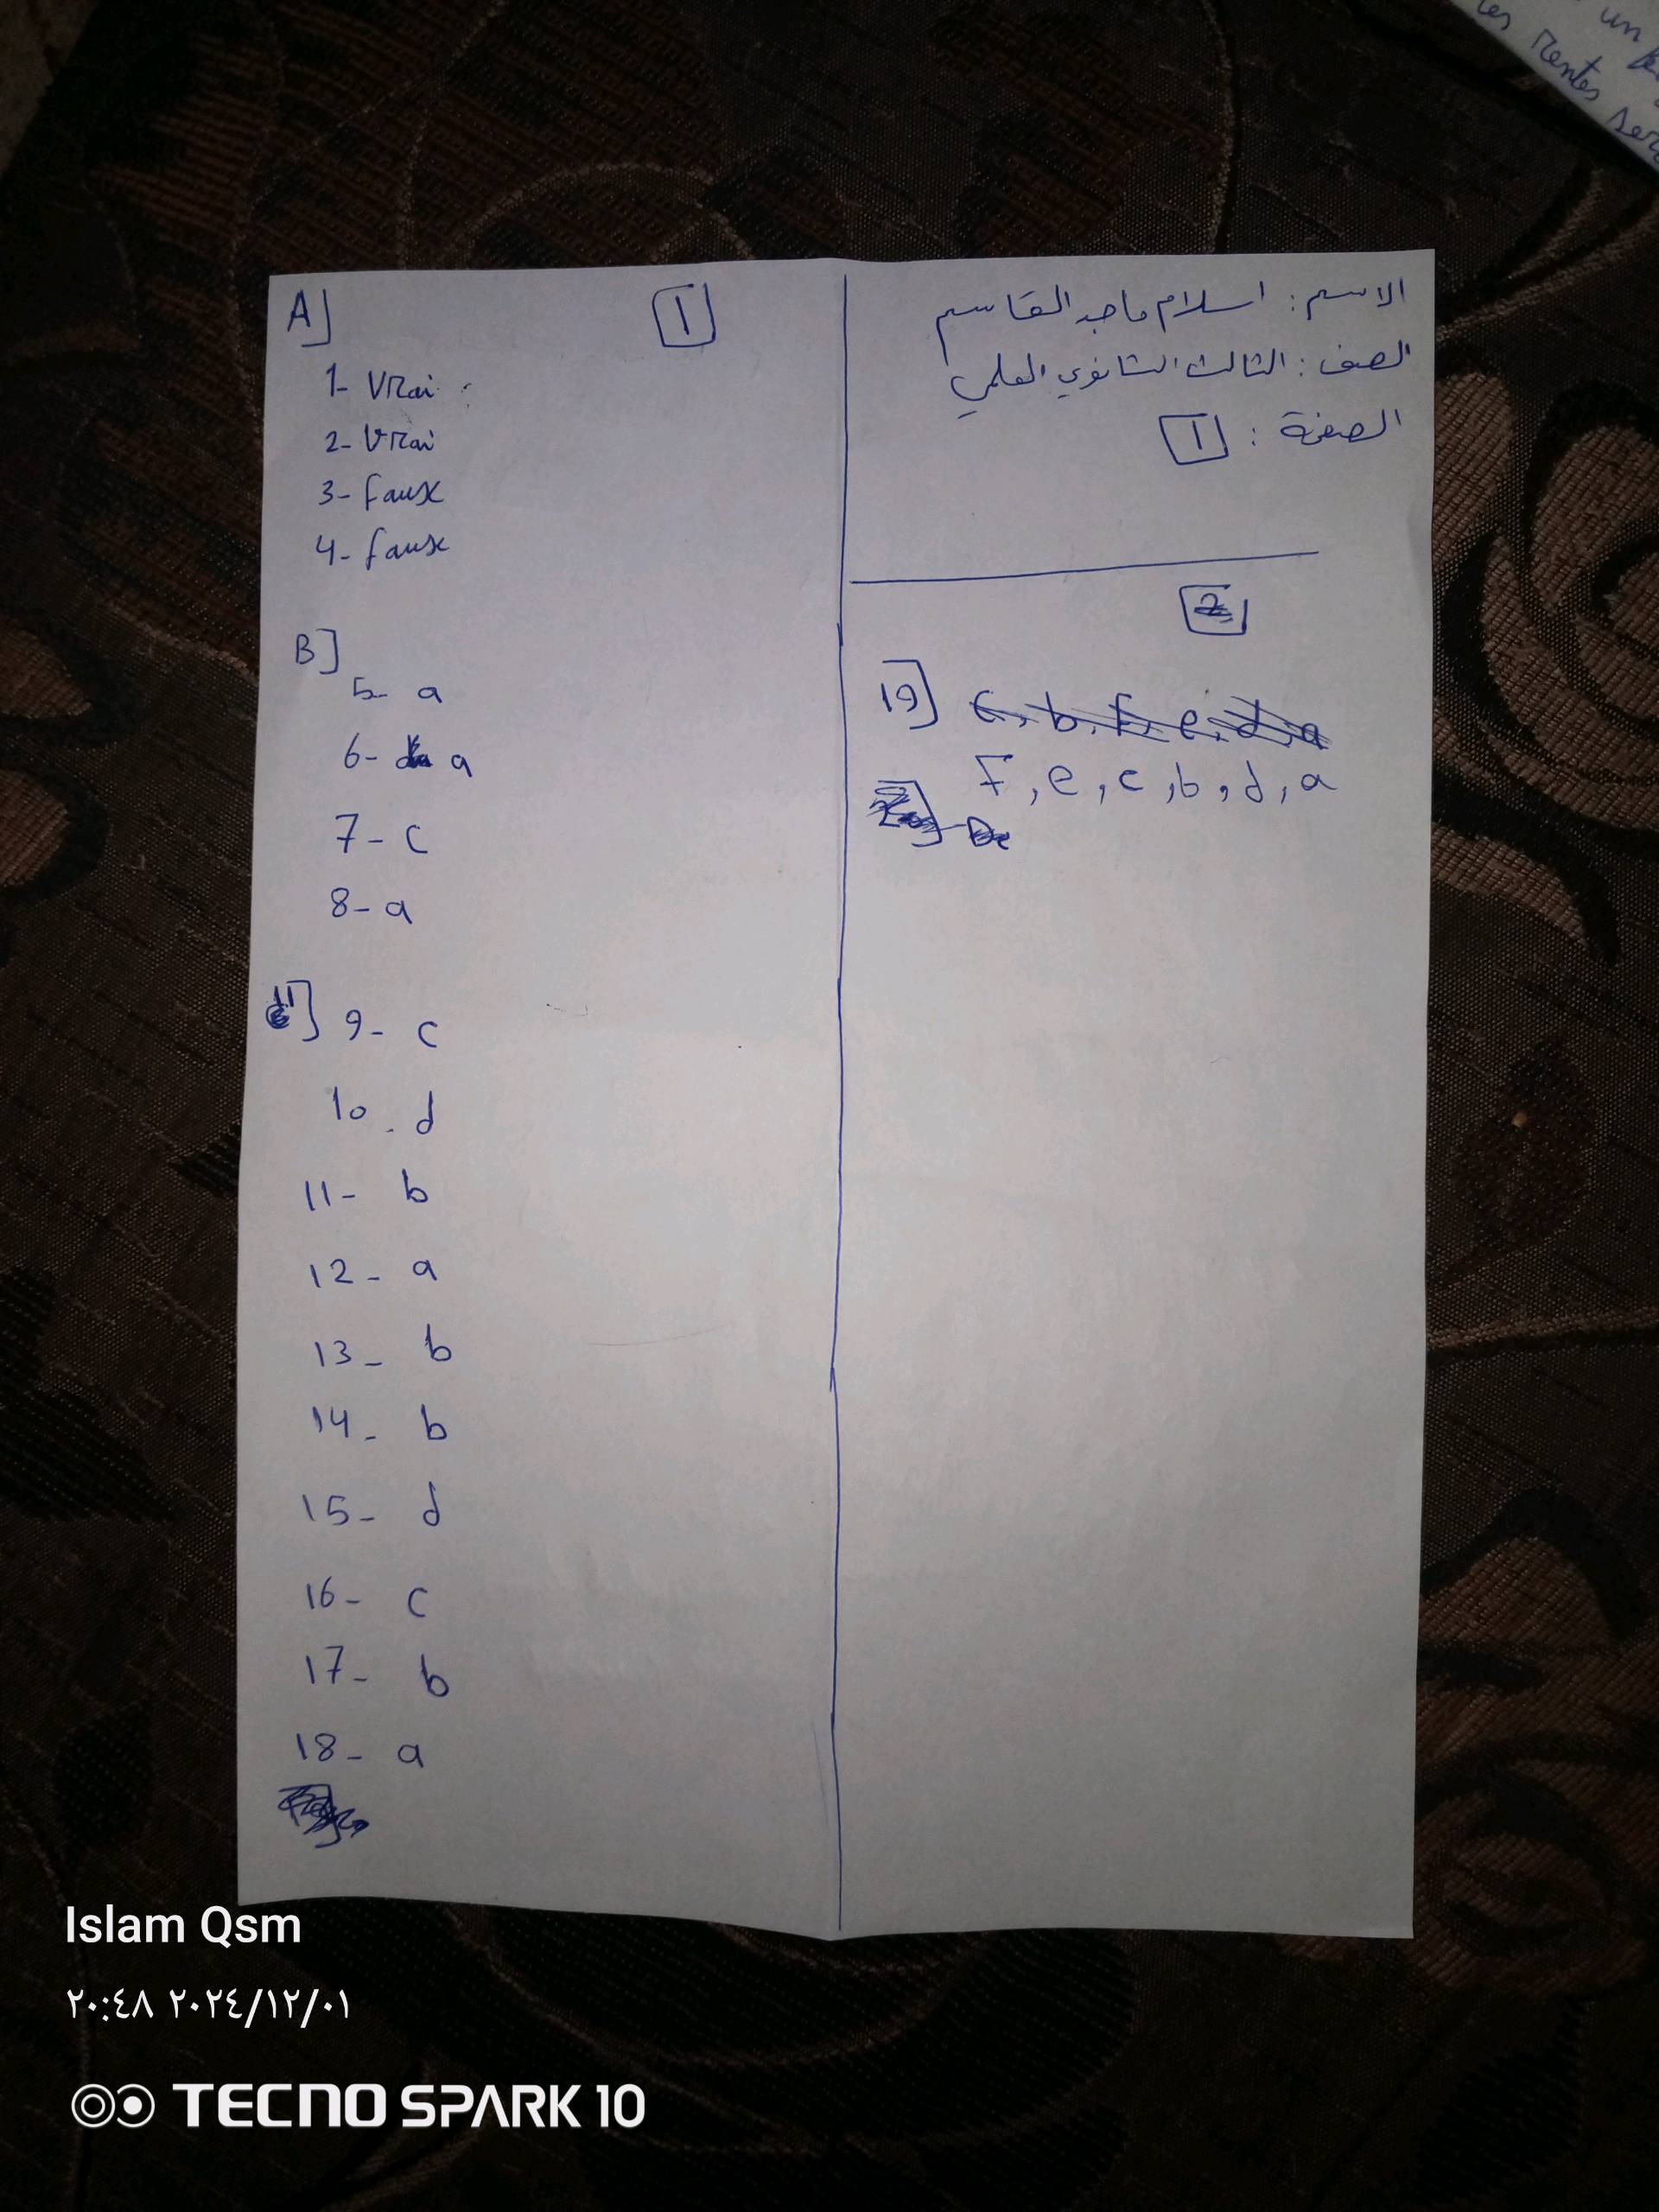 الاسم : اسلام ماجد القاسم
الصف : الثالث الثانوي العلمي
الصفحة : 1
A] 1
1- Vrai
2- Vrai
3- Faux
4- faux
B]
5- a
6- a
7- c
8- a
9- c
10. d
11- b
12- a
13- b
14- b
15- d
16- c
17- b
18- a
2
19] c, b, F, e, d, a
F, e, c, b, d, a
un
les rentes
Islam Qsm
٢٠:٤٨ ٢٠٢٤/١٢/٠١
TECNO SPARK 10